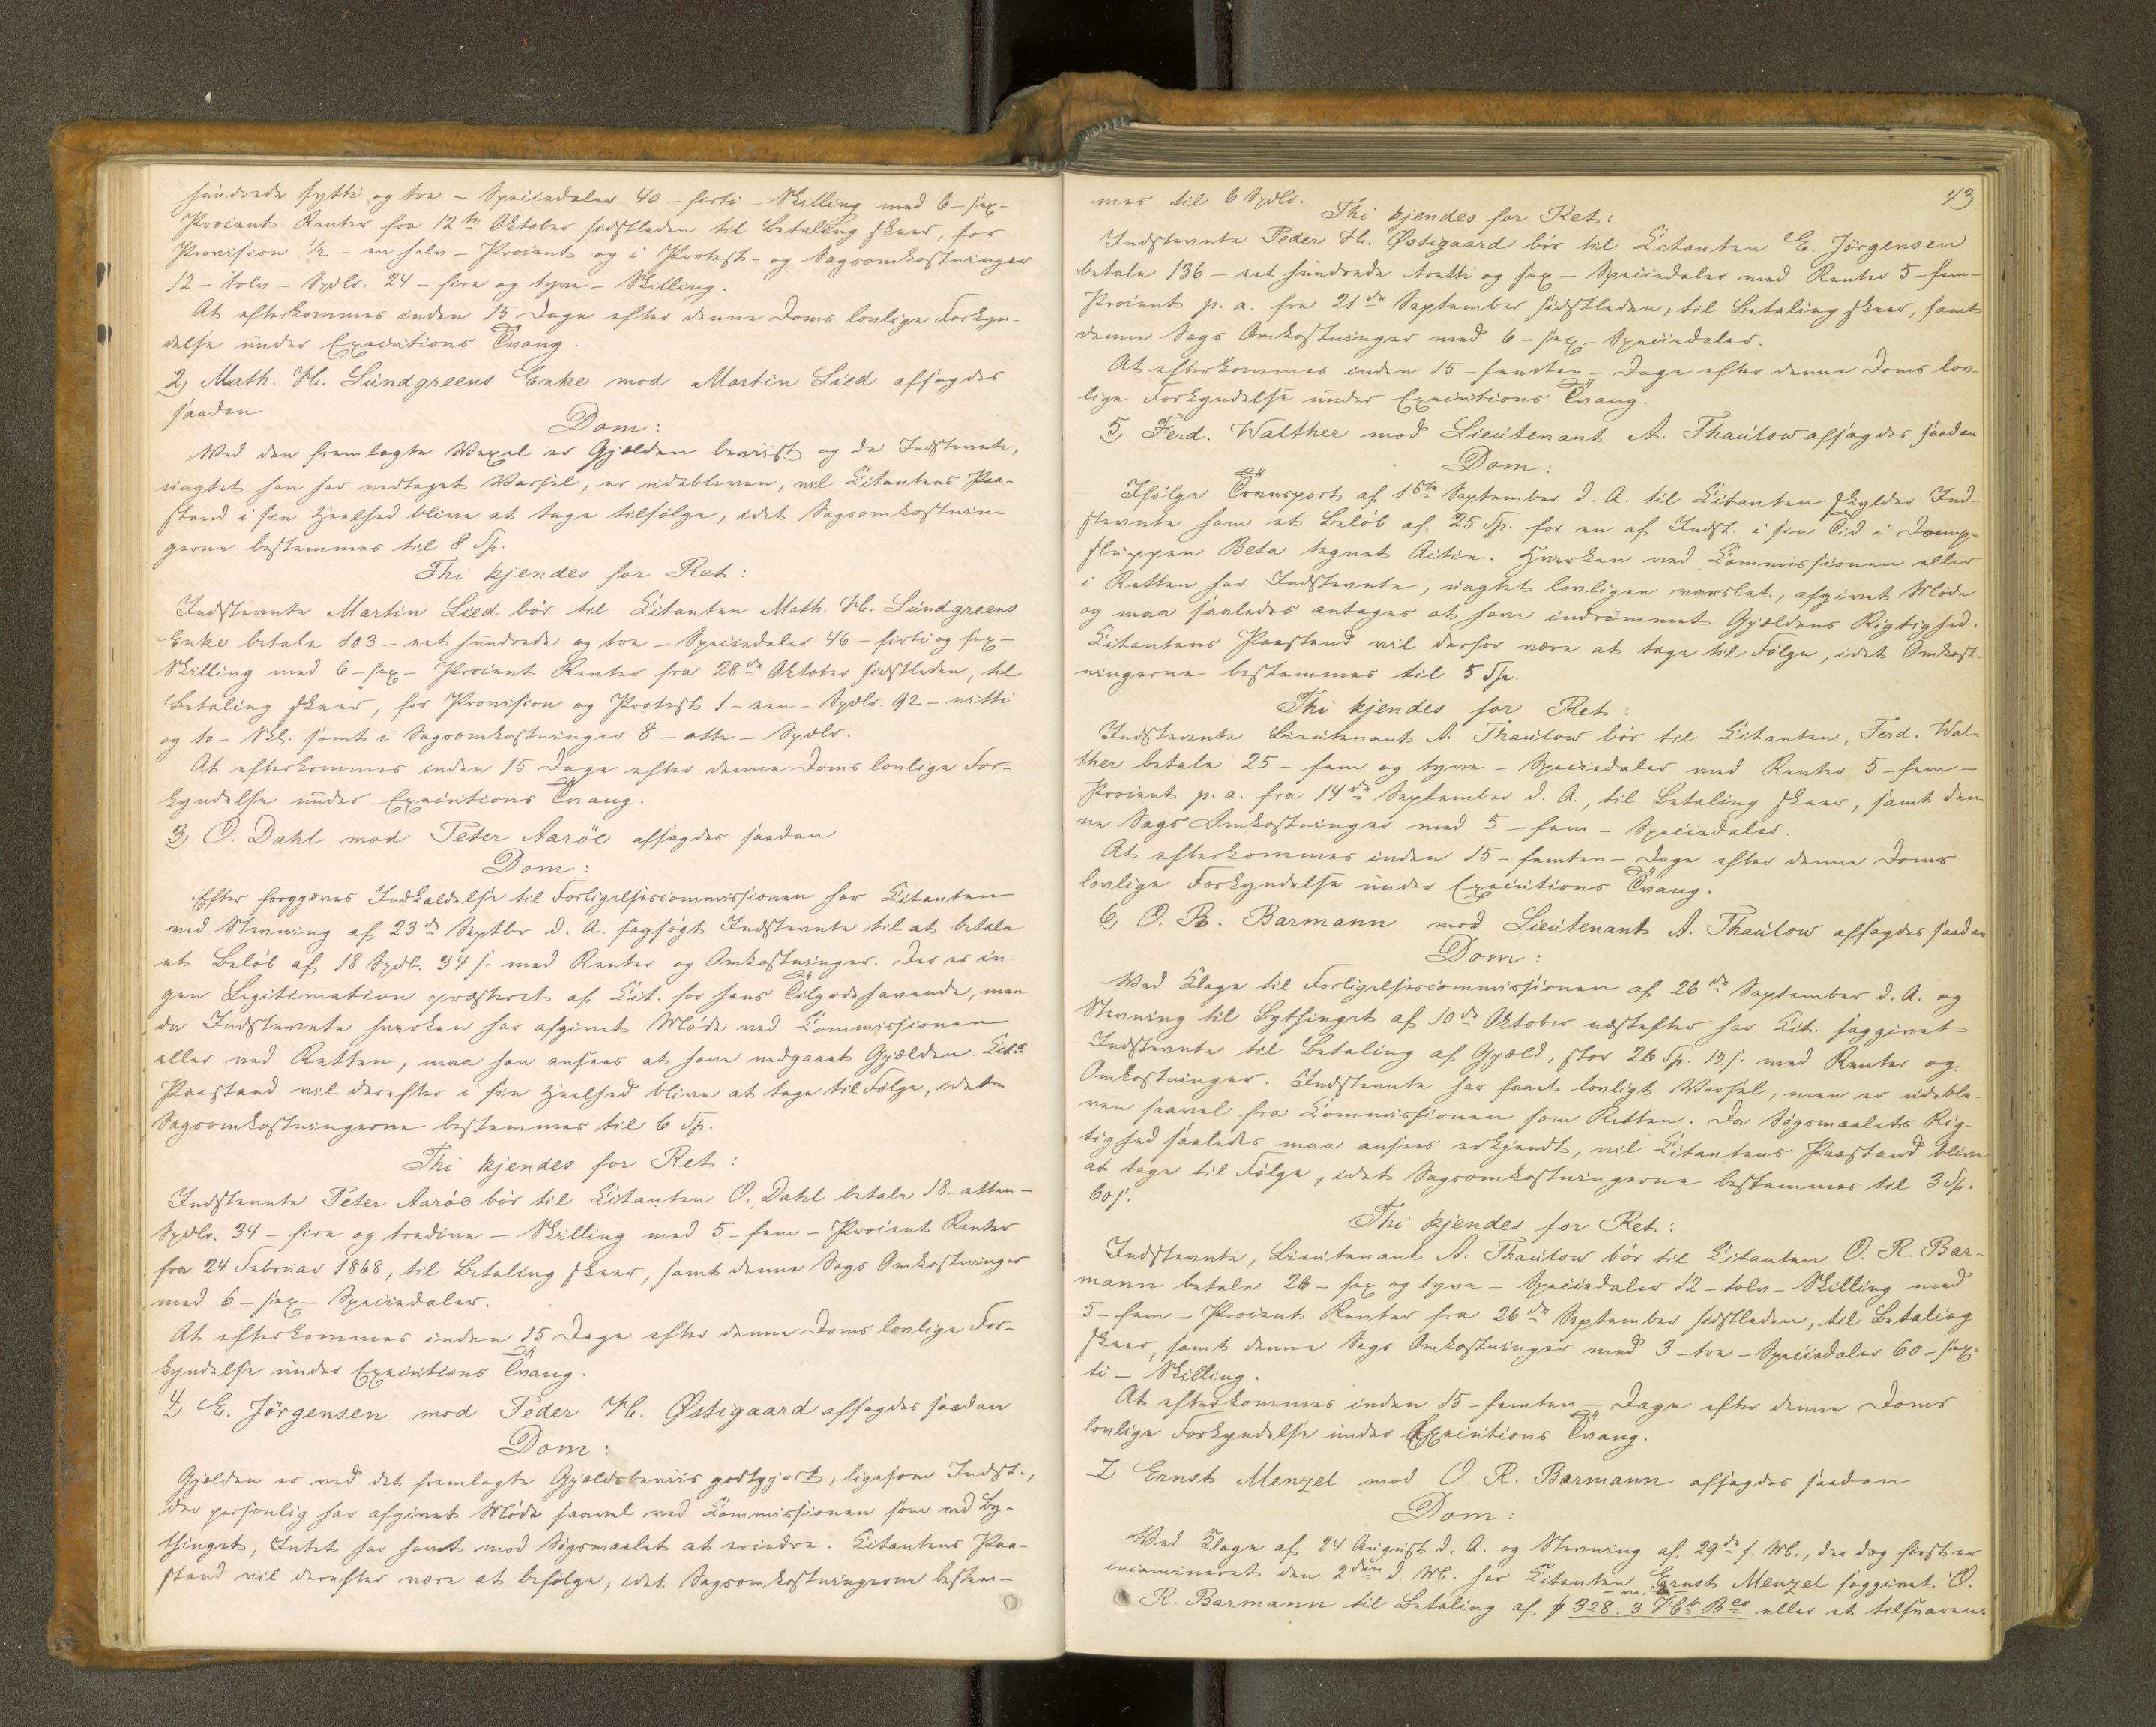 hundrede sytti og tre – Speciedaler 40 – forti – Skilling med 6 – sex –
Procent Renter fra 12te Oktober sidstleden til Betaling skeer, for
Provision ½ – en halv – Procent og i Protest- og Sagsomkostninger
12 – tolv – Spdlr. 24 – fire og tyve – Skilling.
At efterkommes inden 15 Dage efter denne Doms lovlige Forkyn-
delse under Executions Tvang.
2, Math. H. Lundgreens Enke mod Martin Lied afsagdes
saadan
Dom:
Ved den fremlagte Vexel er Gjælden beviist og da Indstevnte,
uagtet han har vedtaget Varsel, er udebleven, vil Citantens Paa-
stand i sin Heelhed blive at tage tilfølge, idet Sagsomkostnin-
gerne bestemmes til 8 Sp.
Thi kjendes for Ret:
Indstevnte Martin Lied bör til Citanten Math. H. Lundgreens
Enke betale 103 – eet hundrede og tre – Speciedaler 46 – firti og sex –
Skilling med 6 – sex – Procent Renter fra 28de Oktober sidstleden, til
Betaling skeer, for Provision og Protest 1 – een – Spdlr. 92 – nitti
og to – Skl. samt i Sagsomkostninger 8 – otte – Spdlr.
At efterkommes inden 15 Dage efter denne Doms lovlige For-
kyndelse under Executions Tvang.
3, O. Dahl mod Peter Aaröe afsagdes saadan
Dom:
Efter forgjæves Indkaldelse til Forligelsescommissionen har Citanten
ved Stevning af 23de Septbr d. A. sagsögt Indstevnte til at betale
et Belöb af 18 Spdlr. 34 s. med Renter og Omkostninger. Der er in
gen Legitimation præsteret af Cit. for hans Tilgodehavende, men
da Indstevnte hverken har afgivet Möde ved Commissionen
eller ved Retten, maa han ansees at have vedgaaet Gjælden. Cit.s
Paastand vil derefter i sin Heelhed blive at tage til Fölge, idet
Sagsomkostningerne bestemmes til 6 Sp.
Thi kjendes for Ret:
Indstevnte Peter Aaröe bör til Citanten O. Dahl betale 18 – atten –
Spdlr. 34 – fire og tredive – Skilling med 5 – fem – Procent Renter
fra 24 Februar 1868, til Betaling skeer, samt denne Sags Omkostninger
med 6 – sex – Speciedaler.
At efterkommes inden 15 Dage efter denne Doms lovlige For-
kyndelse under Executions Tvang.
4, E. Jörgensen mod Peder H. Østigaard afsagdes saadan
Dom:
Gjælden er ved det fremlagte Gjældsbeviis godtgjort, ligesom Indst.,
der personlig har afgivet Möde saavel ved Commissionen som ved By-
thinget, Intet har havt mod Sögsmaalet at erindre. Citantens Paa-
stand vil derefter være at befölge, idet Sagsomkostningerne bestem-
43
mes til 6 Spdlr.
Thi kjendes for Ret:
Indstevnte Peder H. Østigaard bör til Citanten E. Jörgensen
betale 136 – eet hundrede tretti og sex – Speciedaler med Renter 5 – fem –
Procent p. a. fra 21de September sidstleden, til Betaling skeer, samt
denne Sags Omkostninger med 6 – sex – Speciedaler.
At efterkommes inden 15 – femten – Dage efter denne Doms lov-
lige Forkyndelse under Executions Tvang.
5, Ferd. Walther mod Lieutenant A. Thaulow afsagdes saadan
Dom:
Ifölge Transport af 15te September d. A. til Citanten skylder Ind-
stevnte ham et Belöb af 25 Sp. for en af Indst. i sin Tid i Damp-
skluppen Beta tegnet Actie. Hverken ved Commissionen eller
i Retten har Indstevnte, uagtet lovligen varslet, afgivet Möde
og maa saaledes antages at have indrömmet Gjældens Rigtighed.
Citantens Paastand vil derfor være at tage til Fölge, idet Omkost-
ningerne bestemmes til 5 Sp.
Thi kjendes for Ret:
Indstevnte Lieutenant A. Thaulow bör til Citanten, Ferd. Wal-
ther betale 25 – fem og tyve – Speciedaler med Renter 5 – fem –
Procent p. a. fra 14de September d. A., til Betaling skeer, samt den-
ne Sags Omkostninger med 5 – fem – Speciedaler.
At efterkommes inden 15 – femten – Dage efter denne Doms
lovlige Forkyndelse under Executions Tvang.
6, O. R. Barmann mod Lieutenant A. Thaulow afsagdes saadan
Dom:
Ved Klage til Forligelsescommissionen af 26de September d. A. og
Stevning til Bythinget af 10de Oktober næstefter har Cit. saggivet
Indstevnte til Betaling af Gjæld, stor 26 Sp. 12 s. med Renter og
Omkostninger. Indstevnte har faaet lovligt Varsel, men er udeble-
ven saavel fra Commissionen som Retten. Da Sögsmaalets Rig-
tighed saaledes maa ansees erkjendt, vil Citantens Paastand blive
at tage til Fölge, idet Sagsomkostningerne bestemmes til 3 Sp.
60 s.
Thi kjendes for Ret:
Indstevnte, Lieutenant A. Thaulow bör til Citanten O. R. Bar-
mann betale 26 – sex og tyve – Speciedaler 12 – tolv – Skilling med
5 – fem – Procent Renter fra 26de September sidstleden, til Betaling
skeer, samt denne Sags Omkostninger med 3 – tre – Speciedaler 60 – sex-
ti – Skilling.
At efterkommes inden 15 – femten – Dage efter denne Doms
lovlige Forkyndelse under Executions Tvang.
7, Ernst Menzel mod O. R. Barmann afsagdes saadan
Dom:
Ved Klage af 24 August d. A. og Stevning af 29de s. M., der dog först er
incamineret den 2den d. M. har Citanten Ernst Menzel saggivet O.
R. Barmann til Betaling af 328. 3 Hb Bco eller et tilsvaren-